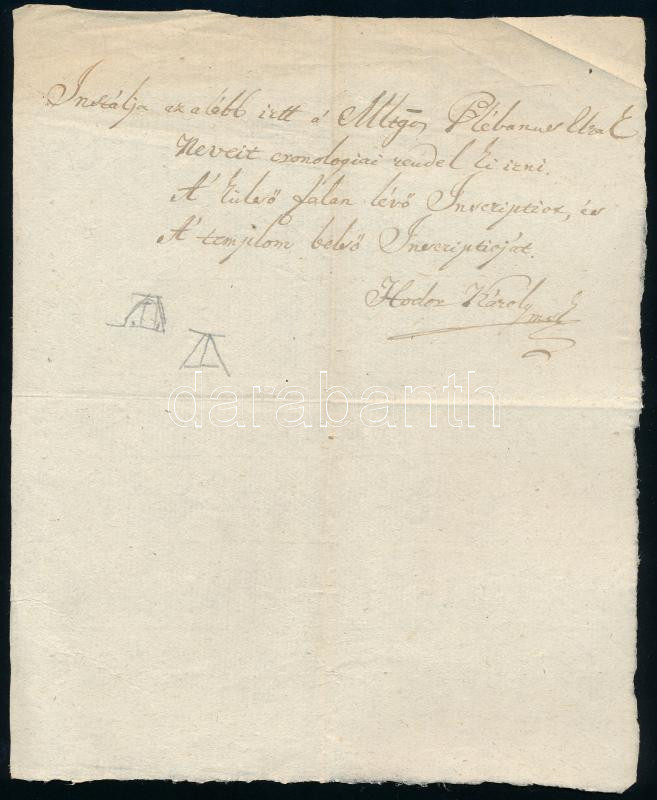 Instálja az alébb irtt á Mltgos Plébanus Urak
Neveit cronologiai rendel ki irni.
A' külső falan lévő Inscriptiot, és
A' templom belső Inscriptioját.
Hodor Károly mk
darabanth